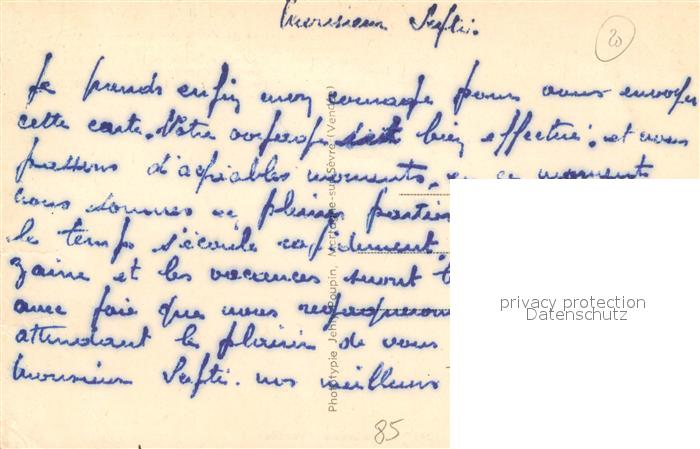 Monsieur Septi.
20
Je prends enfin mon courage pour vous envoyer
cette carte. Notre voyage s'est bien effectué, et nous
passons d'agréables moments, en ce moment
nous sommes en pleine
le temps s'écoule rapidement.
zaine et les vacances seront
avec joie que nous
attendant le plaisir de vous
Monsieur Septi. nos meilleurs
85
Phototypie Jehly-Poupin, Mortagne-sur-Sèvre (Vendée)
privacy protection
Datenschutz